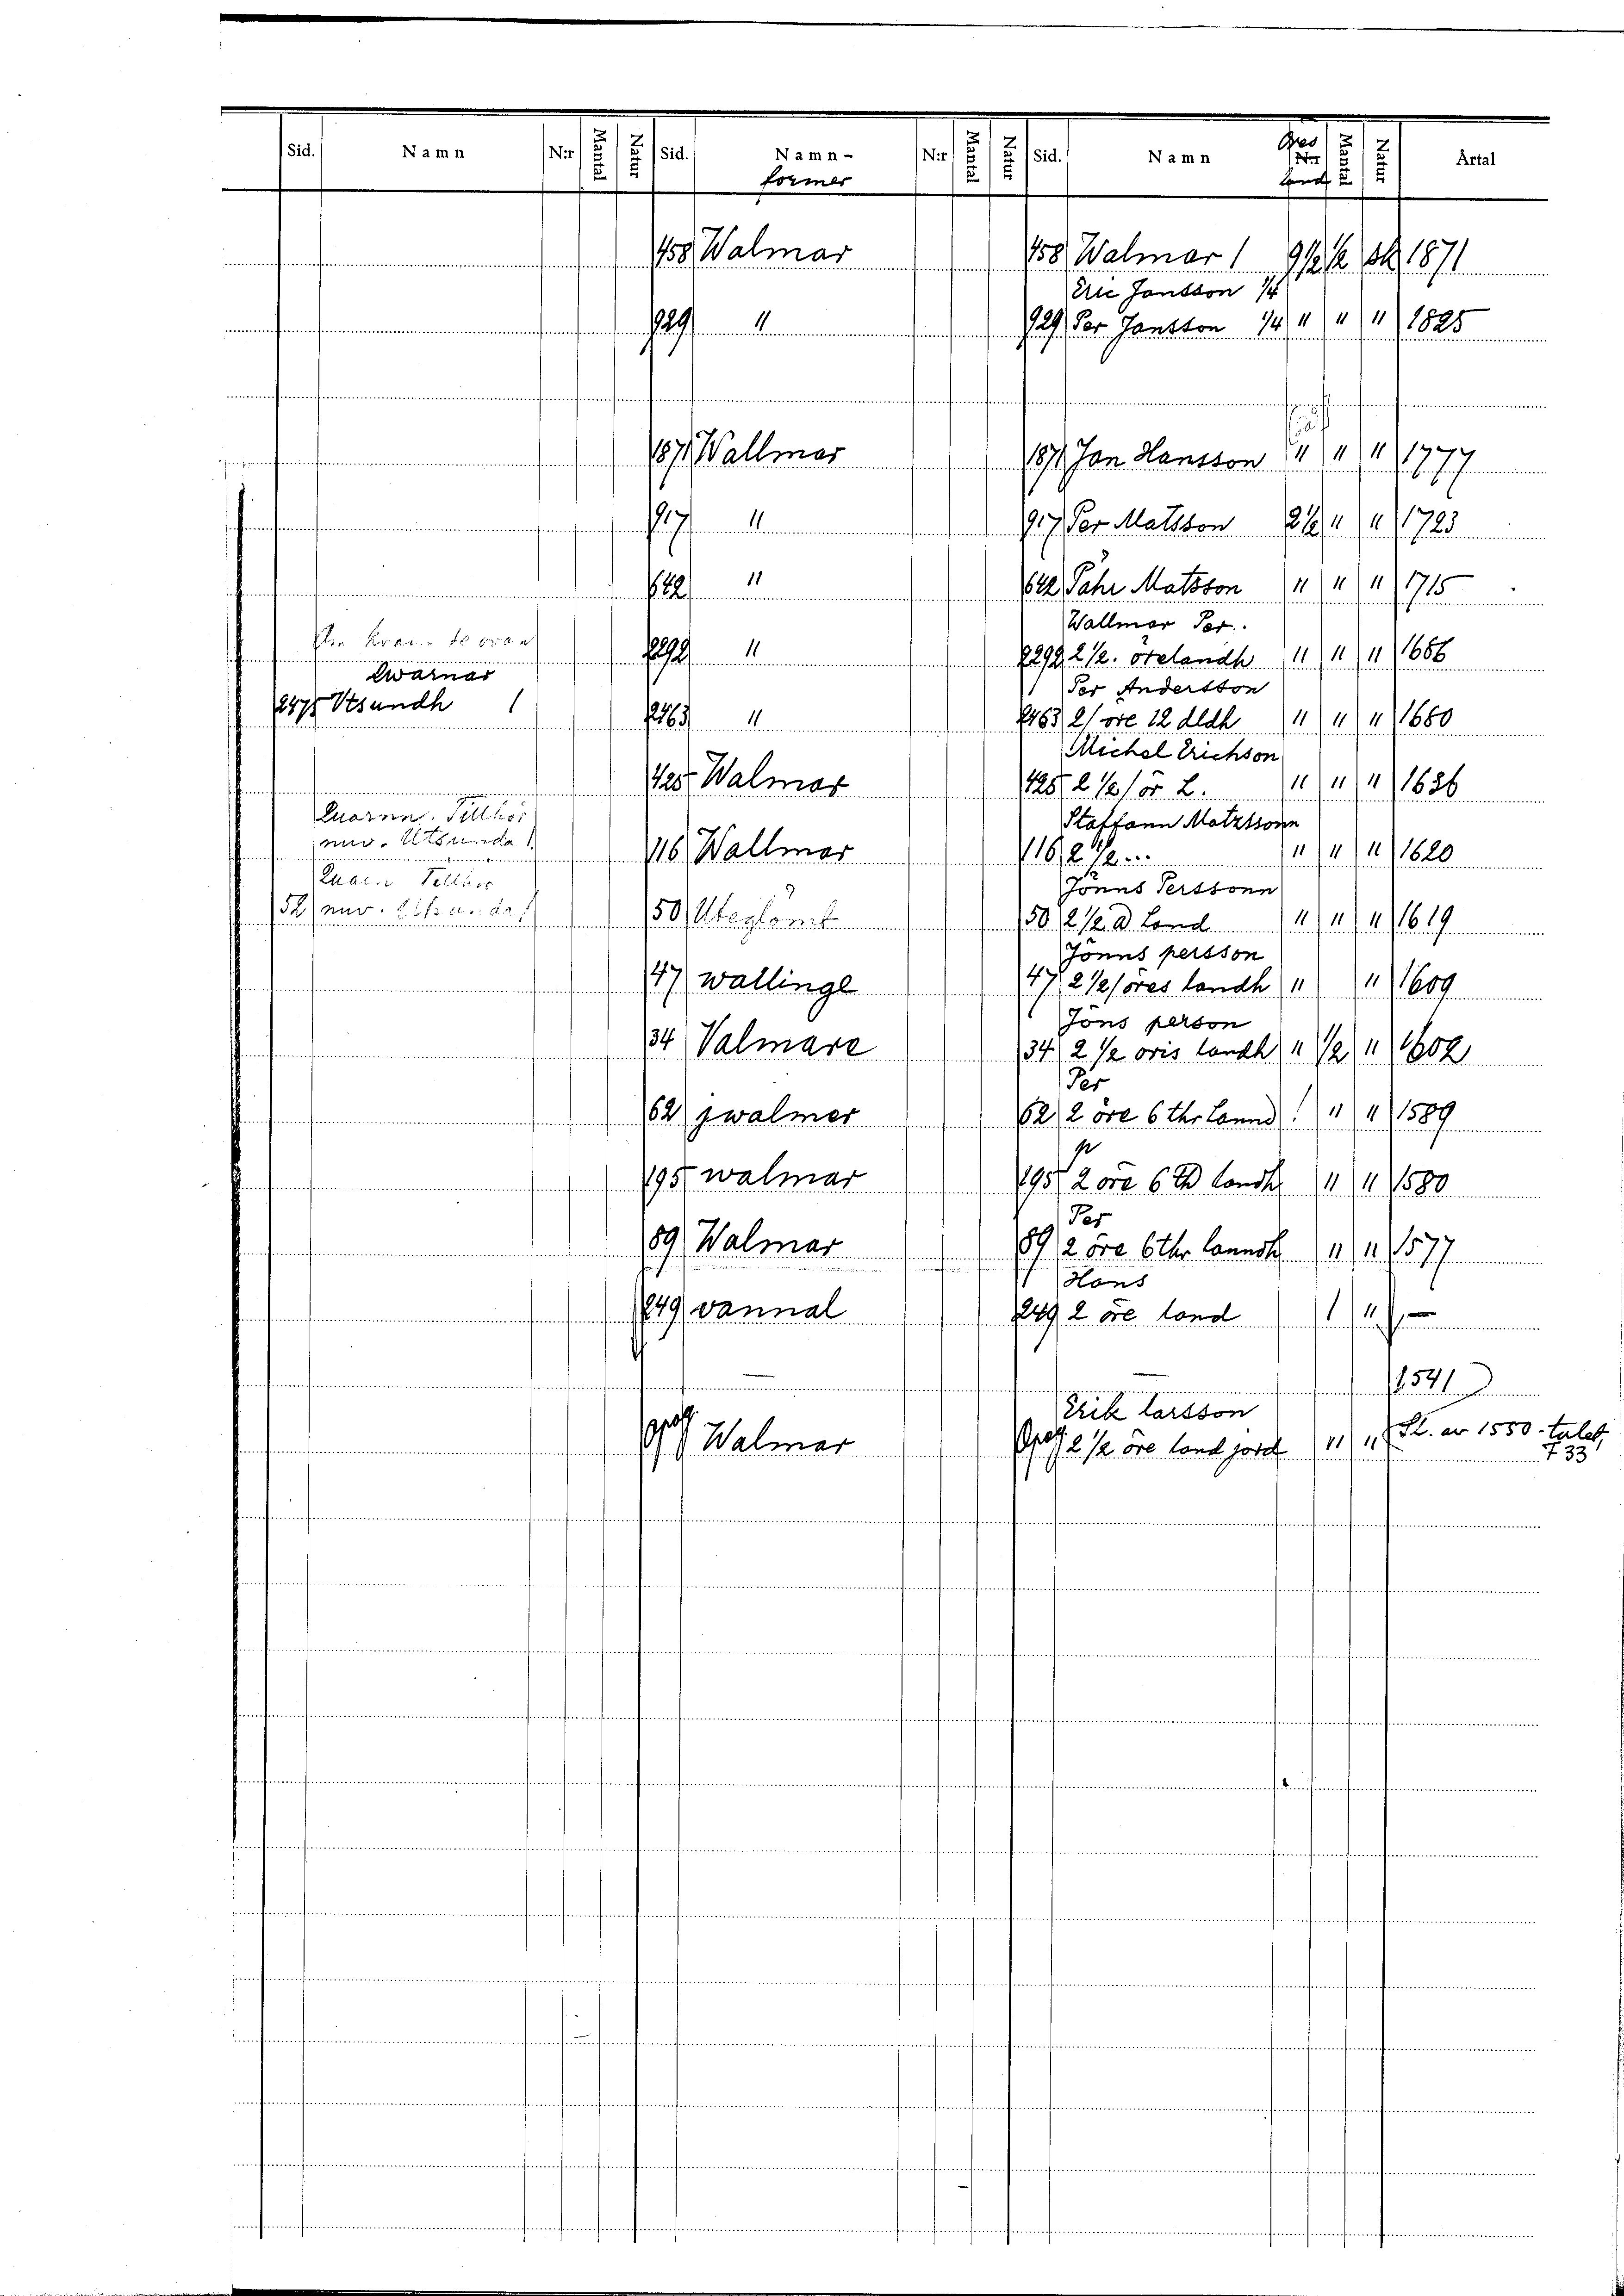 Sid. Namn N:r Mantal Natur Sid. Namn- former N:r Mantal Natur Sid. Namn Öres N:r land Mantal Natur Årtal
458 Walmar 458 Walmar 1 9 1/2 1/2 sk 1871
Eric Jansson 1/4
929 " 929 Per Jansson 1/4 " " " 1825
1871 Wallmar 1871 Jan Hansson " " " 1777
917 " 917 Per Matsson 2 1/2 " " 1723
642 " 642 Pähr Matsson " " " 1715
Wallmar Per.
2292 " 2292 2 1/2. örelandh " " " 1686
Qwarnar
Per Andersson
2475 Utsundh 1 2463 " 2463 2/ öre 12 dldh " " " 1650
Michel Erichson
425 Walmar 425 2 1/2/ör L. " " " 1636
Quarnn. Tillhör
Staffann Matzssonn
nuv. Utsunda 1. 116 Wallmar 116 2 1/2... " " " 1620
Quarn Tillhör
Jönns Perssonn
52 nuv. Utsunda 1 50 Uteglömt 50 2 1/2 Ø Land " " " 1619
Jönns persson
47 wallinge 47 2 1/2/öres landh " " 1609
Jöns person
34 Valmare 34 2 1/2 öris landh " 1/2 " 1602
Per
62 jwalmer 62 2 öre 6 thr Lannd ! " " 1589
p
195 walmar 195 2 öre 6 Ø landh " " 1580
Per
89 Walmar 89 2 öre 6 thr lanndh " " 1577
Hans
249 vannal 249 2 öre land 1 " —
— — 1541
Erik larsson
opag. Walmar Opag. 2 1/2 öre land jord " " Sl. av 1550-talet,
F 33